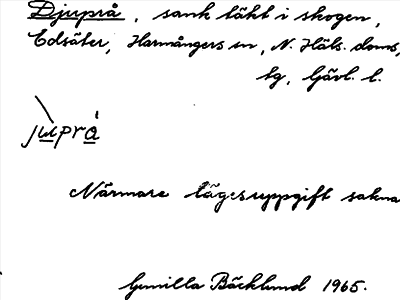 Djuprå, sank täkt i skogen,
Edsäter, Harmångers sn, N. Häls. doms,
lg, Gävl. l.
juprå
Närmare lägesuppgift sakna
Gunilla Bäcklund 1965.